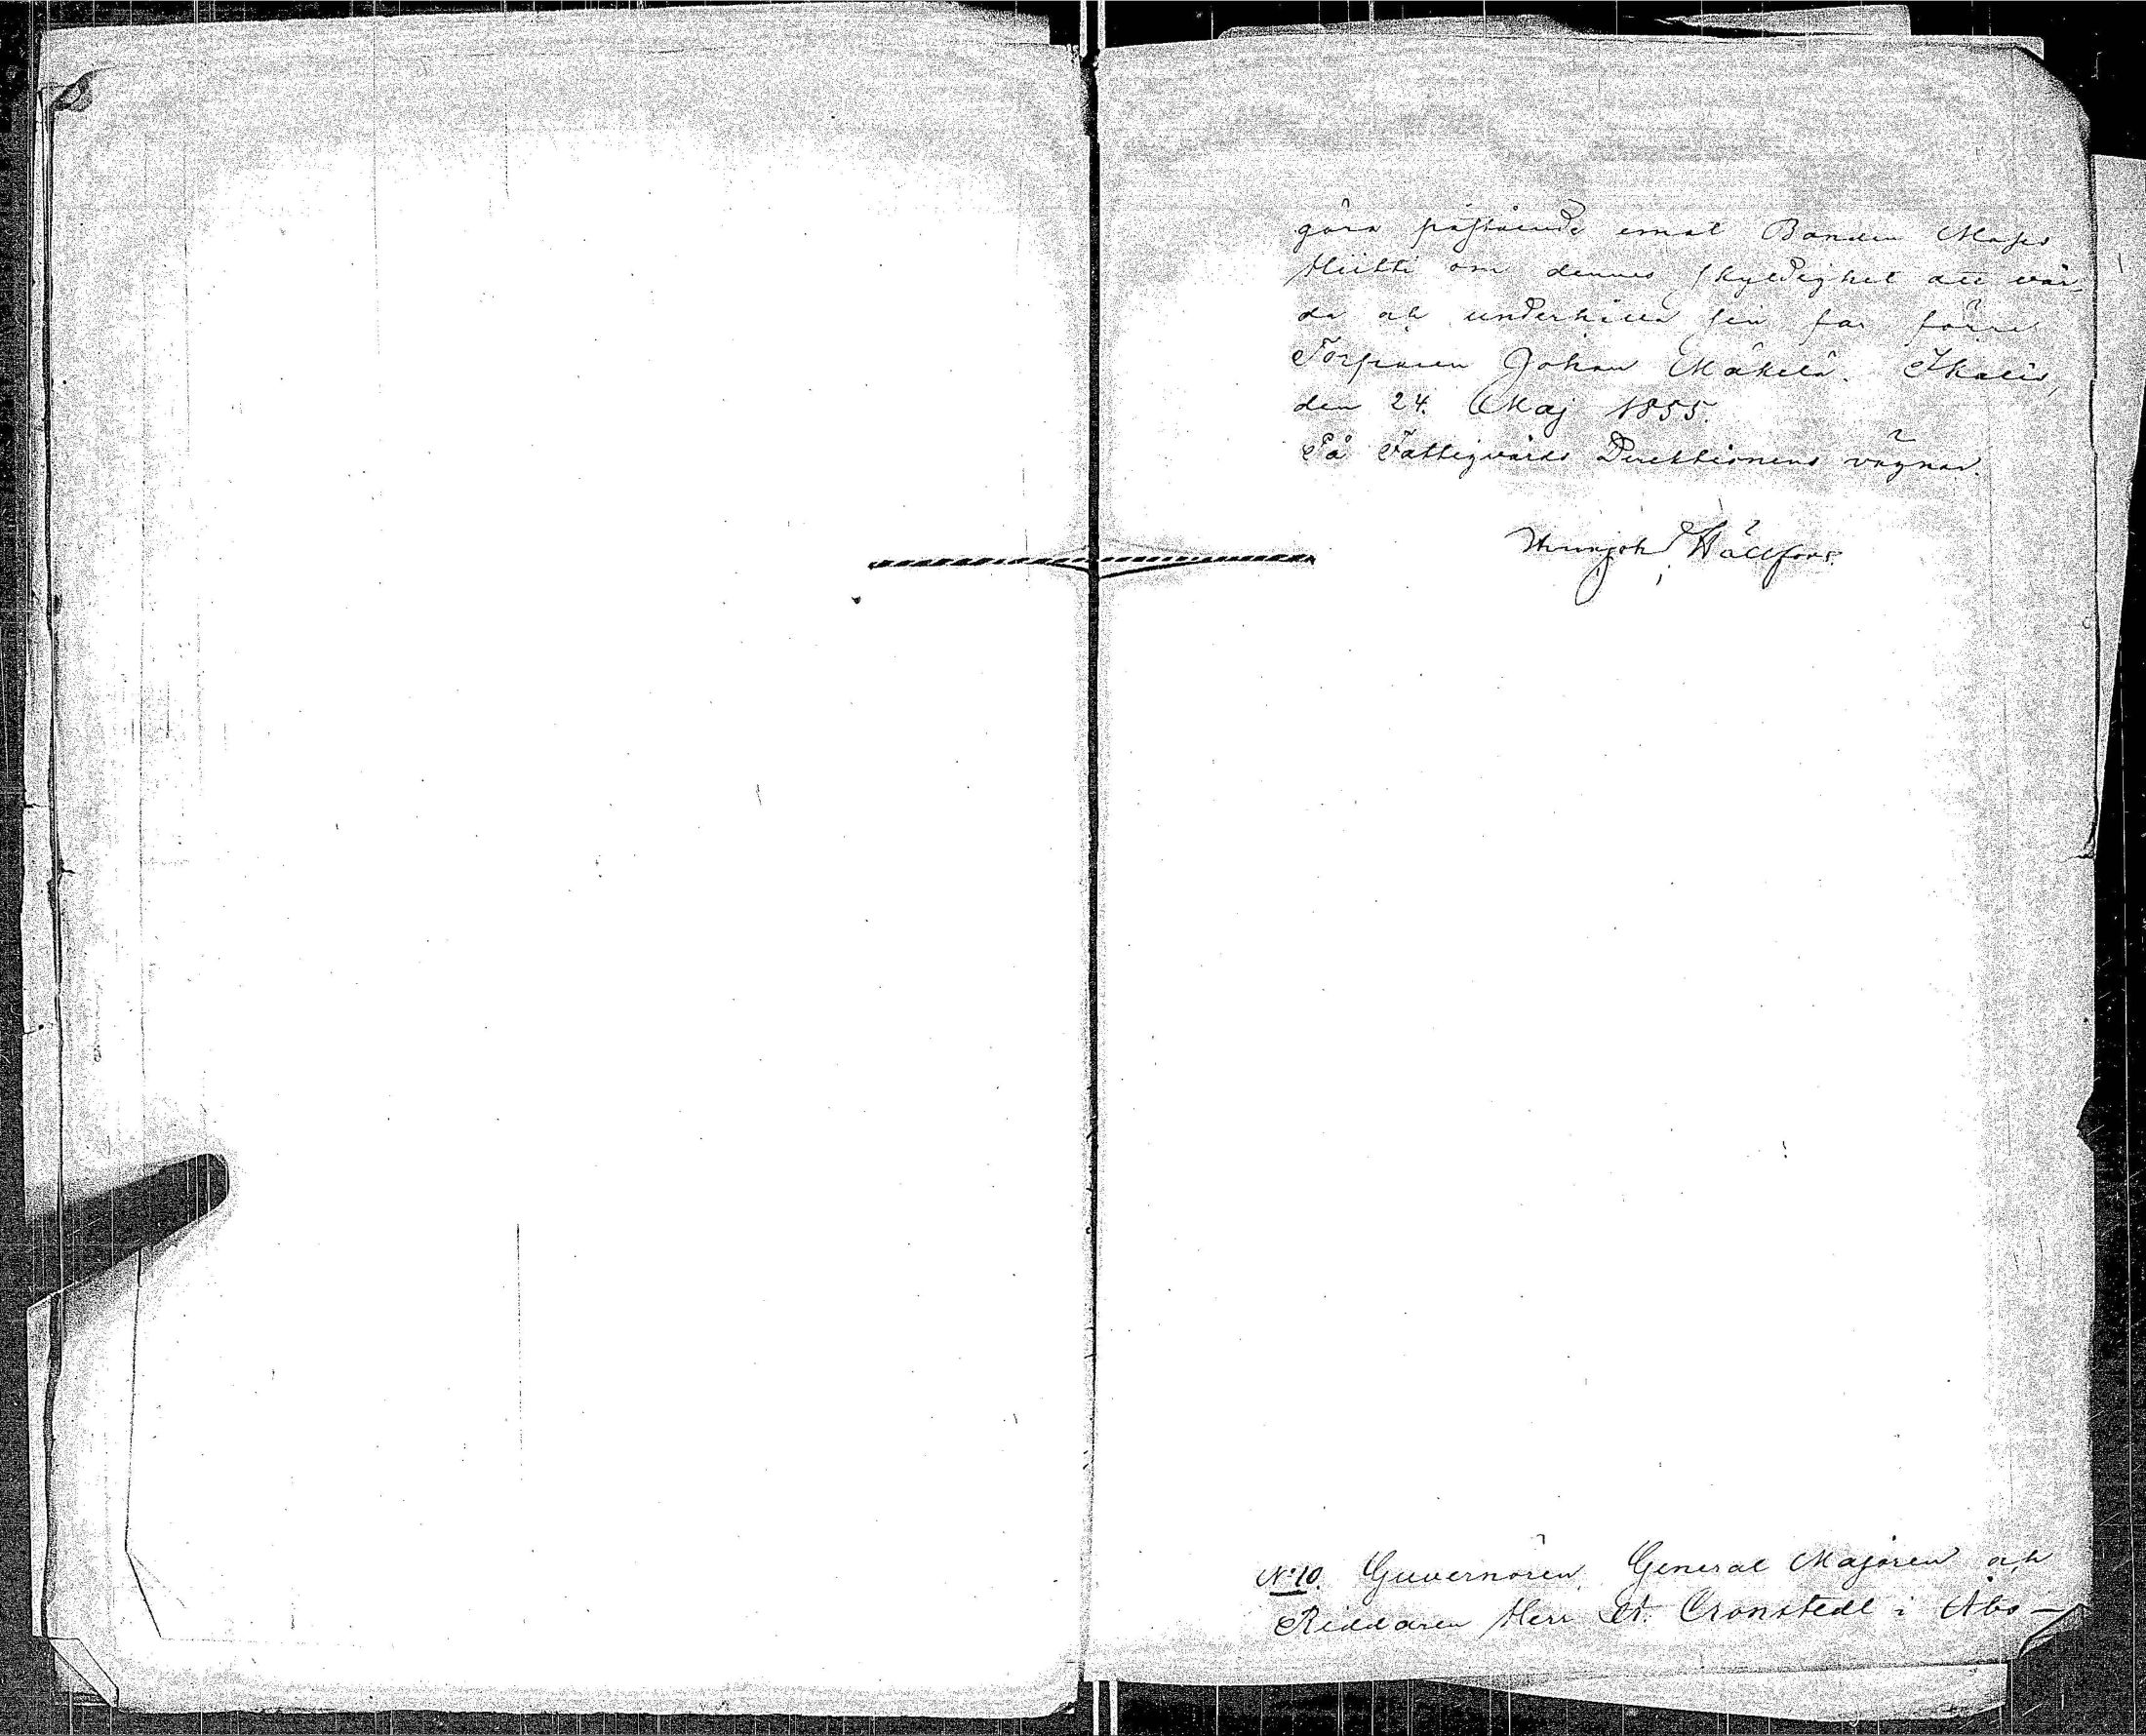 göra påstående emot Bonden Moses
Hiikki om dennes skyldighet att vår-
da och underhålla sin far förre
Torparen Johan Mäkelä. Ikalis,
den 24. Maj 1855.
På Fattigvårds Direktionens vägnar.
Hällfors.
No 10. Guvernören, General Majoren och
Riddaren Herr Cronstedt i Åbo